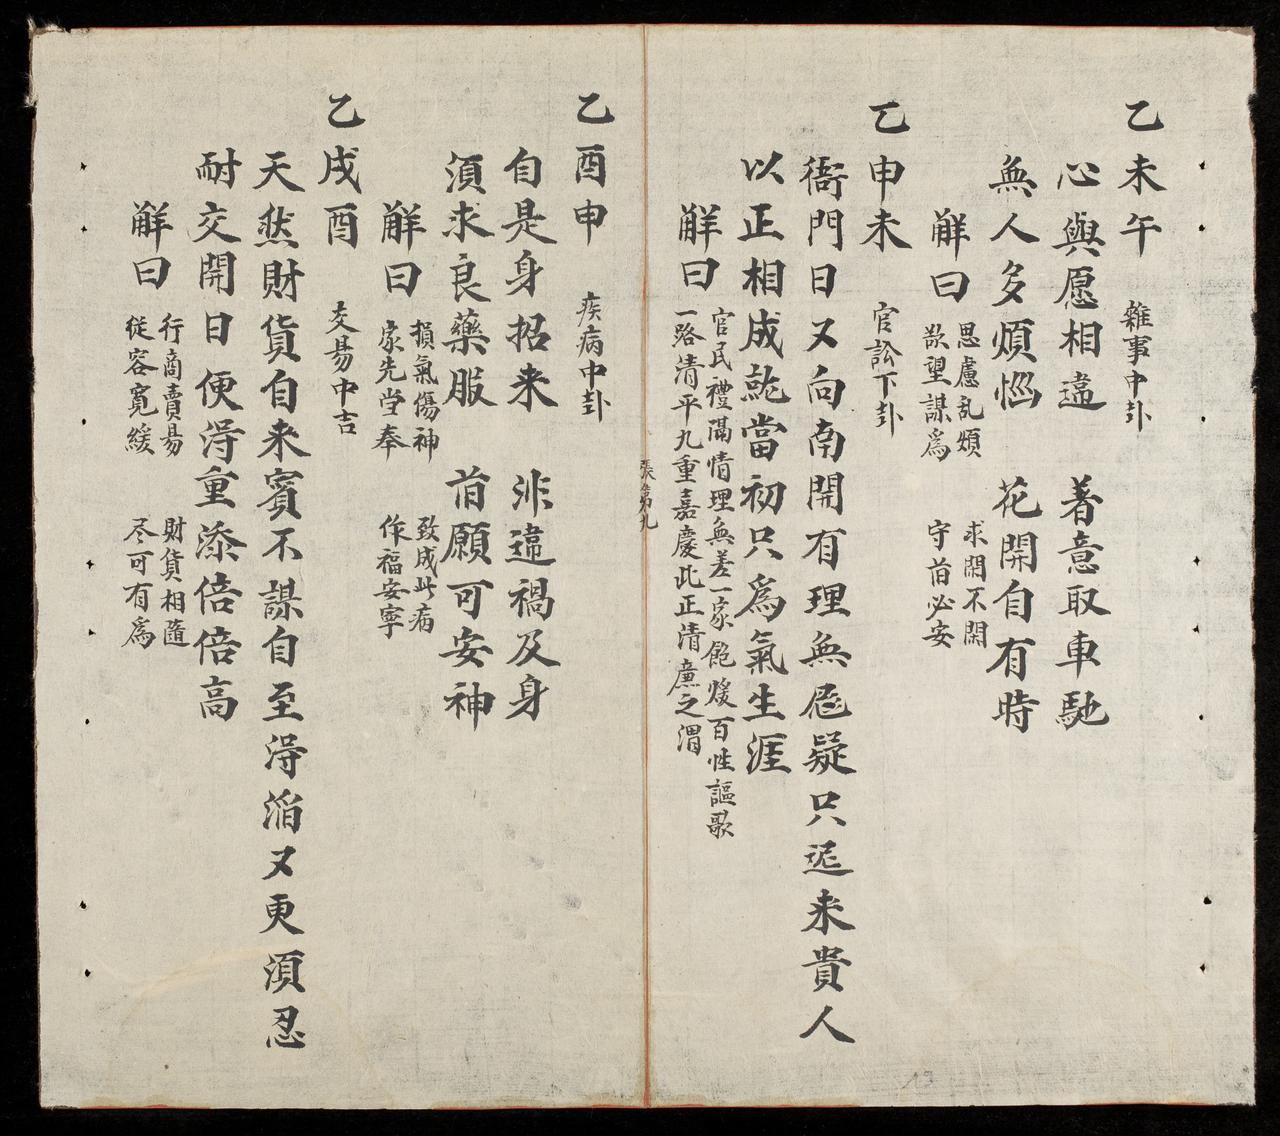 乙未午 雜事中卦
心與愿相違 著意取車馳
無人多煩惱 花開自有時
解曰 思慮乱煩 求閑不閑
欲望謀為 守旧必安
乙申未 官訟下卦
衙門日又向南開有理無屈疑只遲来貴人
以正相成就當初只為氣生涯
解曰 官民禮隔情理無差一家飽煖百性謳歌
一路清平九重嘉慶此正清廉之謂
張第九
乙酉申 疾病中卦
自是身招来 非違禍及身
須求良藥服 旧願可安神
解曰 損氣傷神 致成此病
家先堂奉 作福安寧
乙戌酉 交易中吉
天然財貨自来賓不謀自至淂滔又更須忍
耐交開日便淂重添倍倍高
解曰 行商賣易 財貨相隨
従容寬緩 尽可有為
13